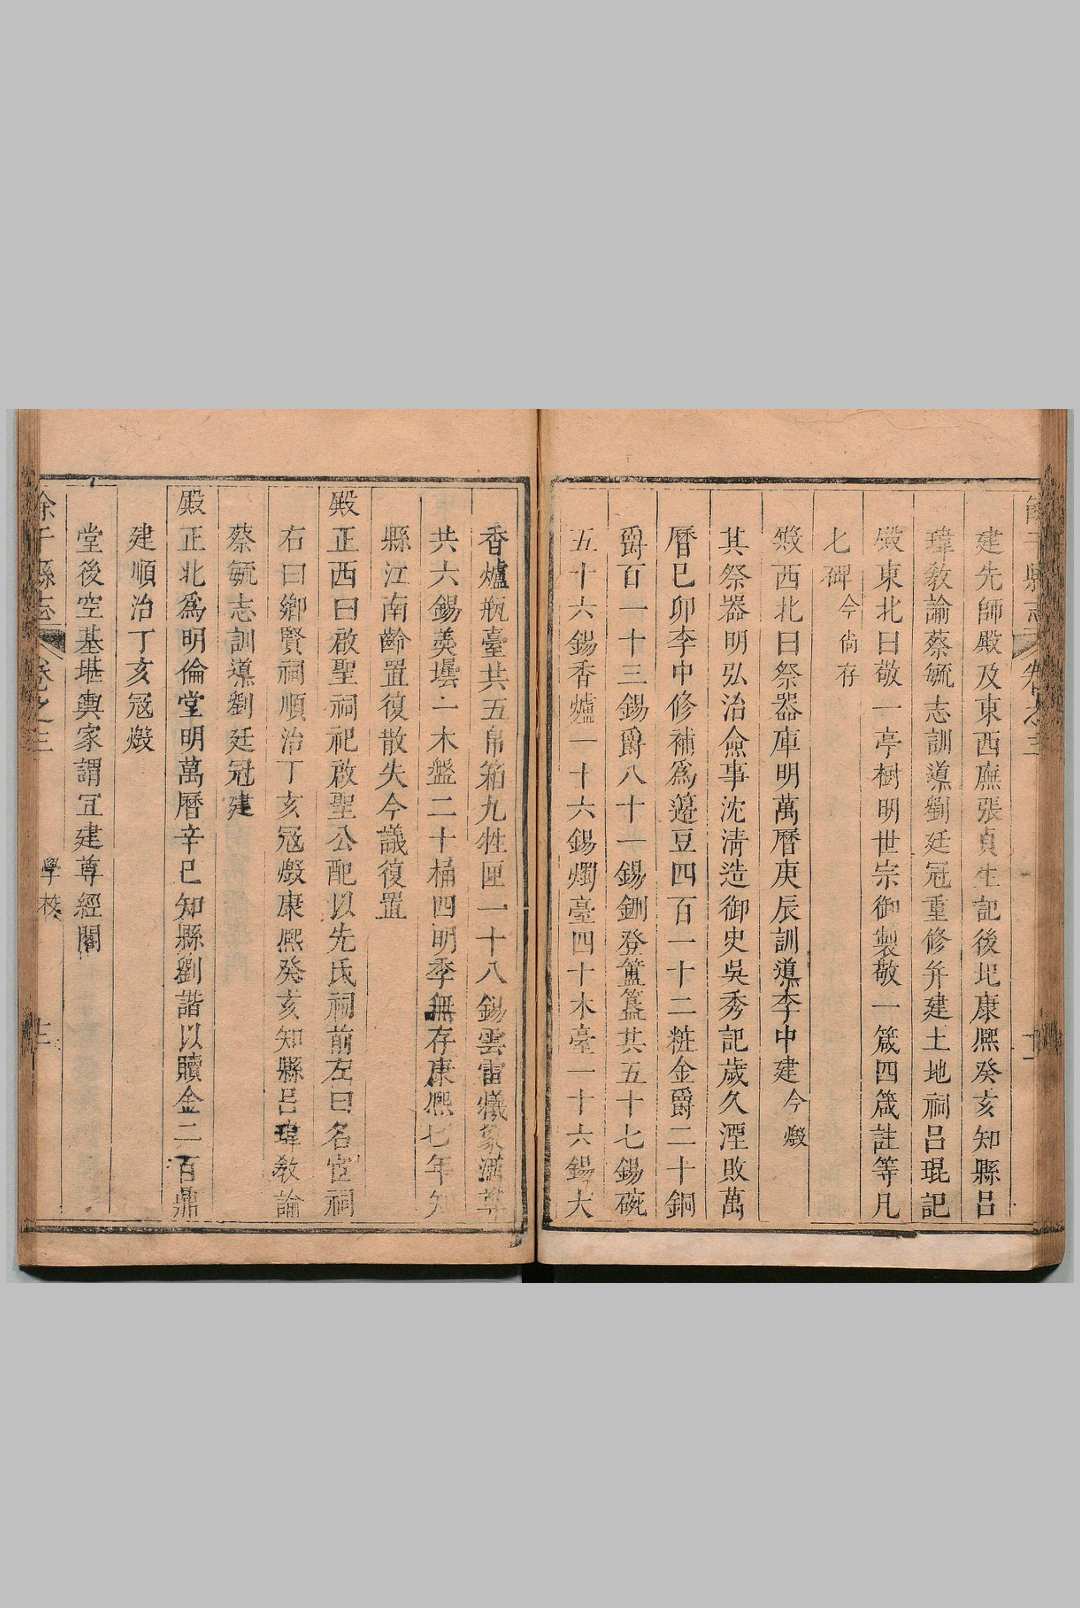 建先師殿及東西廡張貞生記後圯康熙癸亥知縣呂
瑋敎諭蔡毓志訓導劉廷冠重修幷建土地祠呂琨記
殿東北曰敬一亭樹明世宗御製敬一箴四箴註等凡
七碑今尚存
殿西北曰祭器庫明萬曆庚辰訓導李中建今燬
其祭器明弘治僉事沈淸造御史吳秀記歲久湮敗萬
曆巳卯李中修補爲籩豆四百一十二粧金爵二十銅
爵百一十三錫爵八十一錫鉶登簠簋共五十七錫碗
五十六錫香爐一十六錫燭臺四十木臺一十六錫大
香爐瓶臺共五帛箱九牲匣一十八錫雲雷犧象酒尊
共六錫羹壜二木盤二十桶四明季無存康熙七年知
縣江南齡置復散失今議復置
殿正西曰啟聖祠祀啟聖公配以先氏祠前左曰名宦祠
右曰鄉賢祠順治丁亥冦燬康熙癸亥知縣呂瑋敎諭
蔡毓志訓導劉廷冠建
殿正北爲明倫堂明萬曆辛巳知縣劉諧以贖金二百鼎
建順治丁亥冦燬
堂後空基堪輿家謂宜建尊經閣
餘干縣志 卷之三 學校